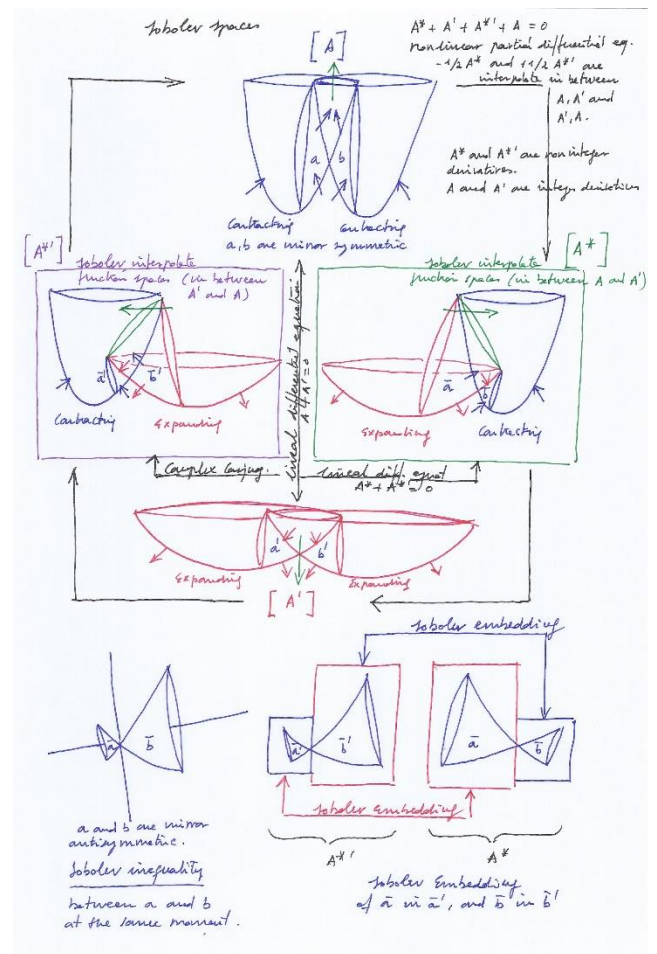 Sobolev spaces
A* + A' + A*' + A = 0
nonlinear partial differential eq.
-1/2 A* and +1/2 A*' are
interpolate in between
A, A' and
A', A.
A* and A*' are non integer
derivatives.
A and A' are integer derivatives
[A]
a b
Contracting Contracting
a, b are mirror symmetric
[A*']
Sobolev interpolate
function spaces (in between
A' and A)
a̅' b̅'
Contracting
Expanding
[A*]
Sobolev interpolate
function spaces (in between A and A')
a̅ b̅
Expanding
Contracting
lineal differential equation
A + A' = 0
Complex Conjug.
lineal diff. equat
A* + A*' = 0
a' b'
Expanding Expanding
[A']
Sobolev embedding
a̅ b̅
a̅' b̅'
a̅ b̅
Sobolev Embedding
A*' A*
a and b are mirror
antisymmetric.
Sobolev inequality
between a and b
at the same moment.
Sobolev Embedding
of a̅ in a̅', and b̅ in b̅'